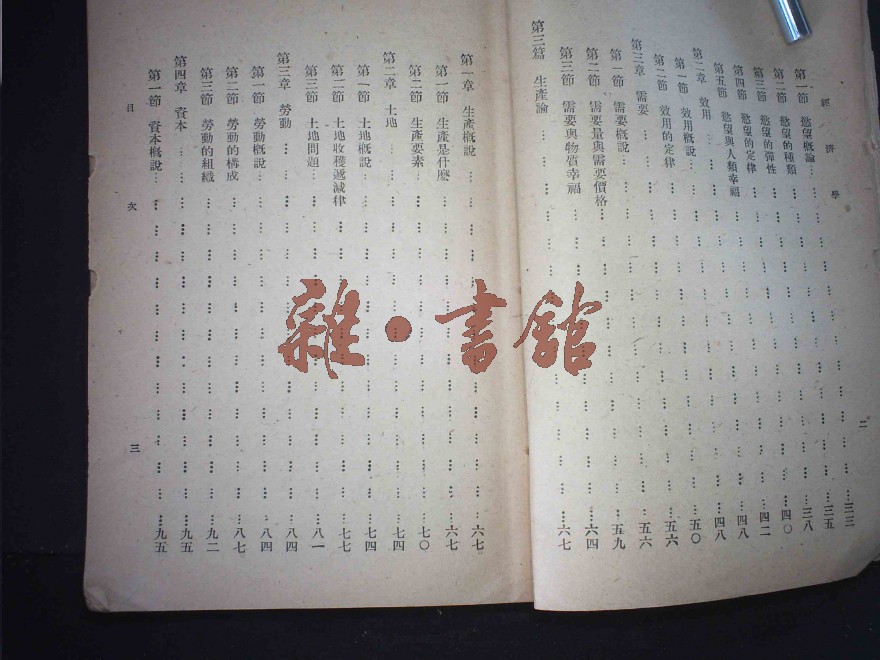 經濟學 二
第一節 慾望概論……三三
第二節 慾望的種類……三五
第三節 慾望的彈性……三八
第四節 慾望的定律……四〇
第五節 慾望與人類幸福……四二
第二章 效用……四八
第一節 效用概說……四八
第二節 效用的定律……五〇
第三章 需要……五六
第一節 需要概說……五六
第二節 需要量與需要價格……五九
第三節 需要與物質幸福……六四
第三篇 生產論……六七
第一章 生產概說……六七
第一節 生產是什麽……六七
第二節 生產要素……七〇
第二章 土地……七四
第一節 土地概說……七四
第二節 土地收穫遞減律……七七
第三節 土地問題……八一
第三章 勞動……八四
第一節 勞動概說……八四
第二節 勞動的構成……八七
第三節 勞動的組織……九二
第四章 資本……九五
第一節 資本概說……九五
目次 三
雜·書館